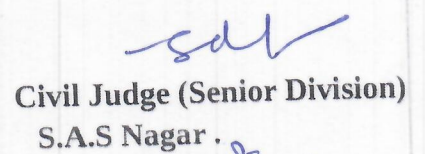 sd/-
Civil Judge (Senior Division)
S.A.S Nagar .